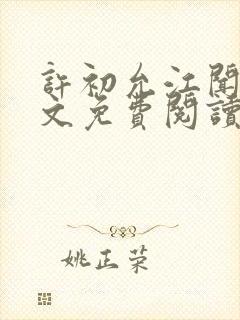 許初允江聞
文免費閱讀
姚正荣